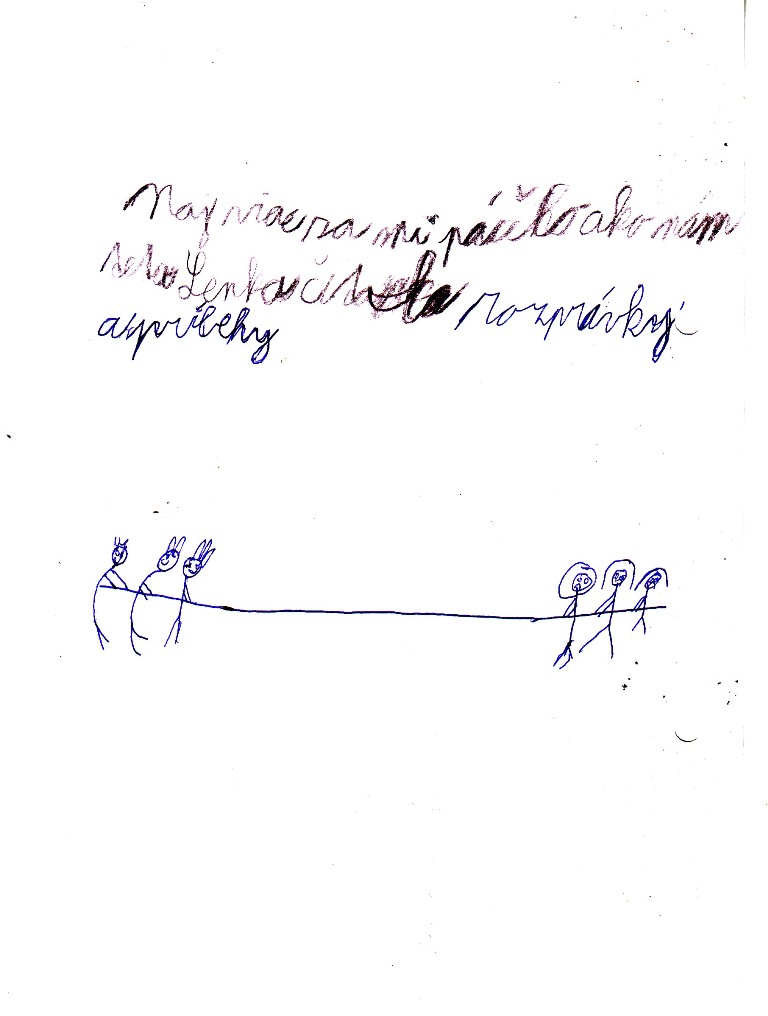 Najviac sa mi páčilo ako nám
teta Lenka čítala rozprávky
a príbehy